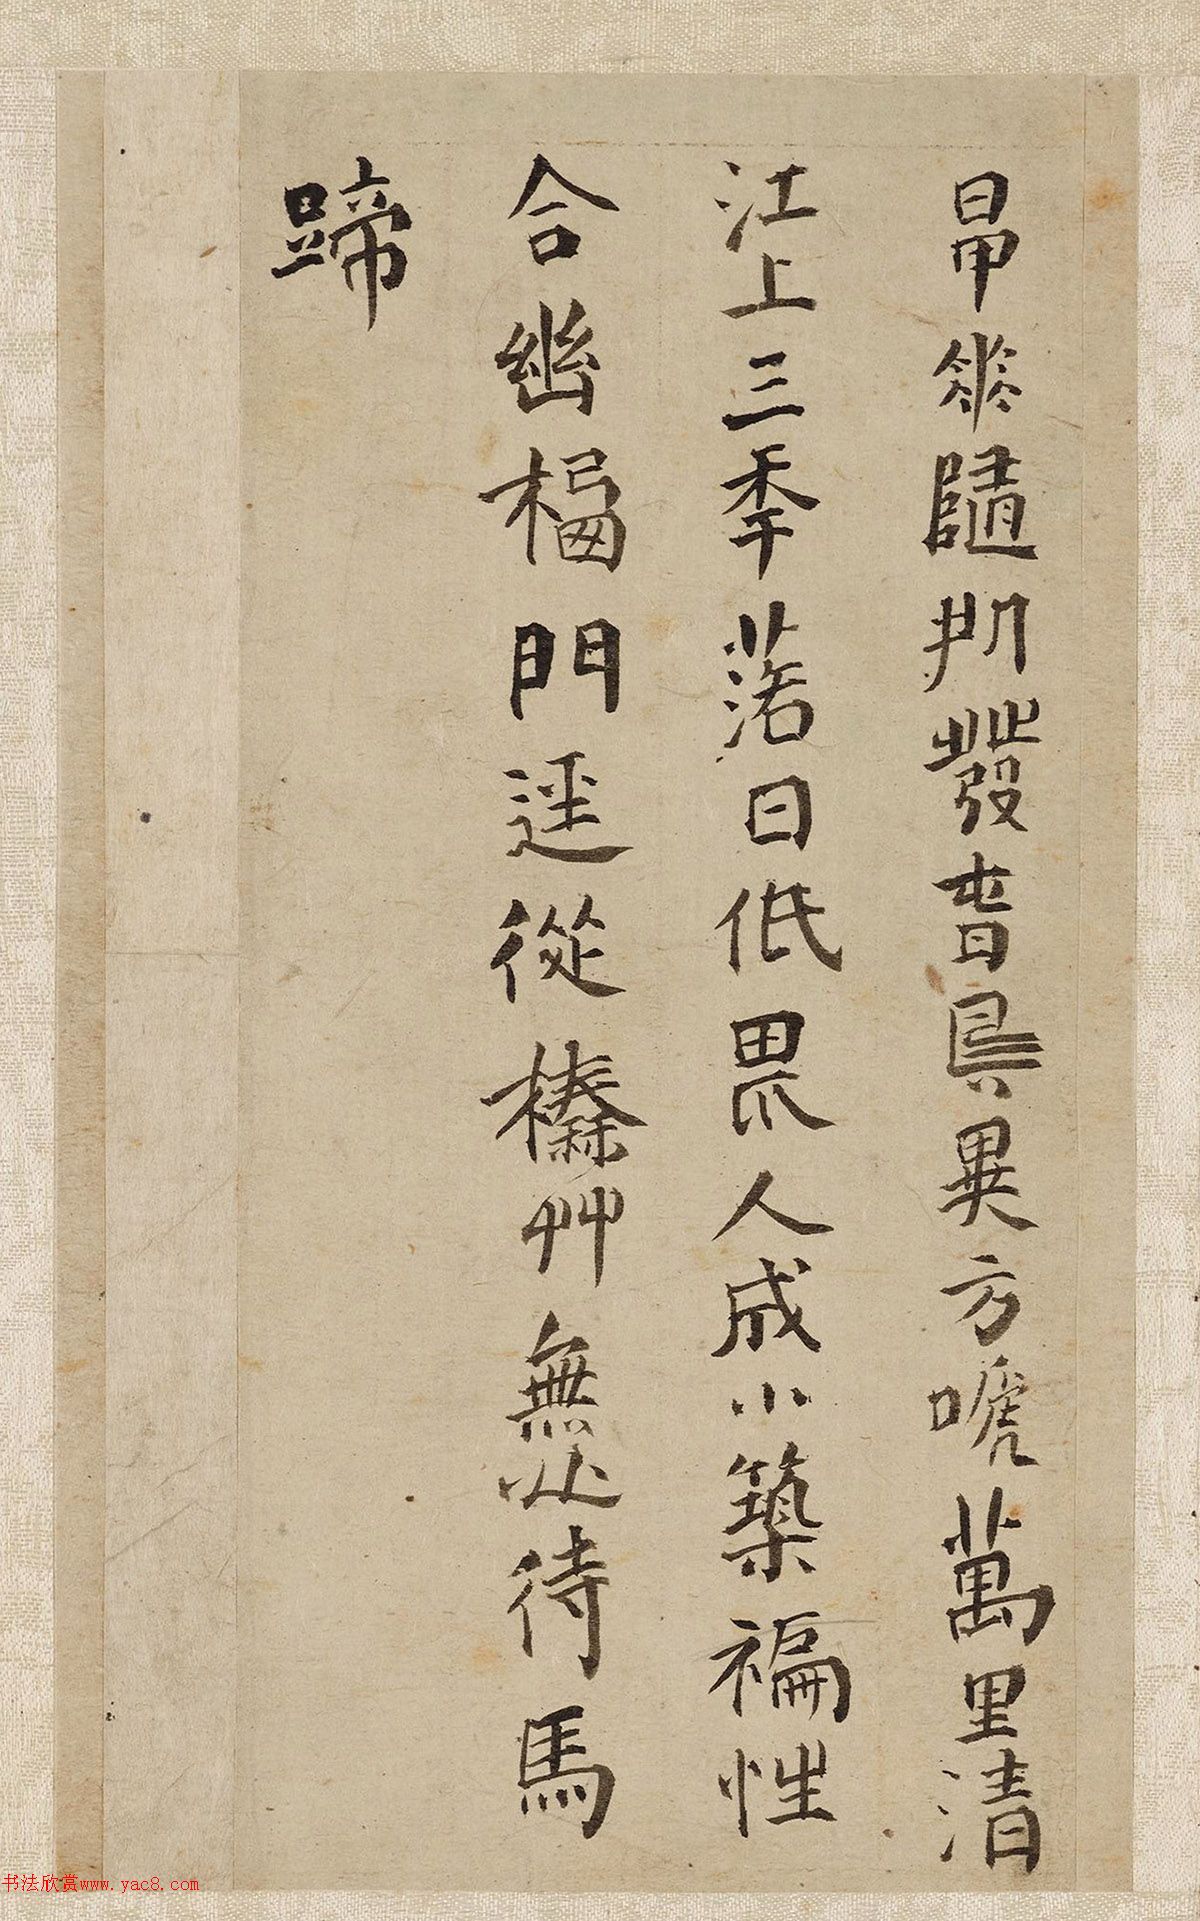 早花隨處發旾鳥異方嗁萬里清
江上三秊落日低畏人成小築褊性
合幽棲門逕從榛艸無心待馬
蹄
书法欣赏www.yac8.com